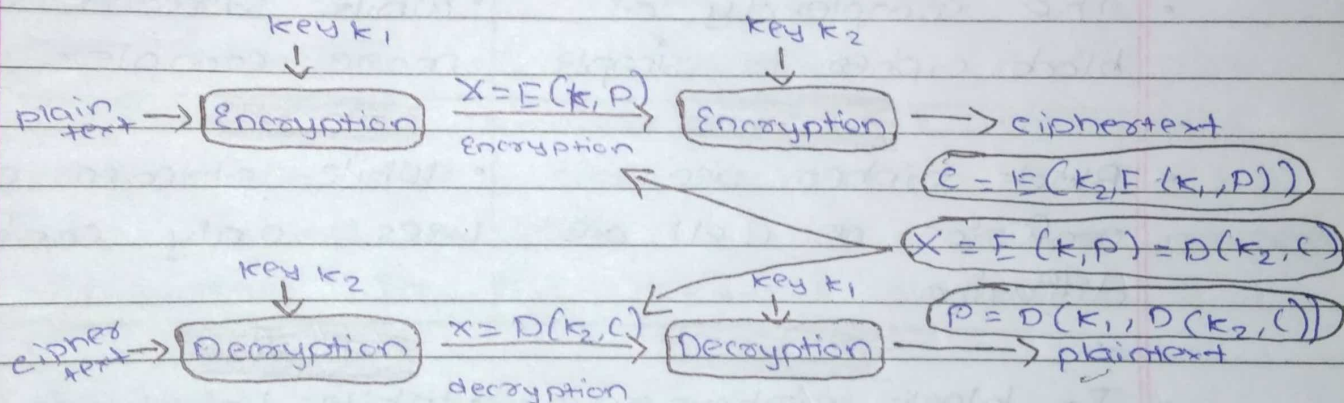 key k₁ key k₂
plain text → Encryption X = E(k, P) Encryption → ciphertext
Encryption
C = E(K₂, E (K₁, P))
X = E (K, P) = D(K₂, C)
key k₂ key k₁
P = D(K₁, D(K₂, C))
cipher text → Decryption x = D(K₂, C) Decryption → plaintext
decryption